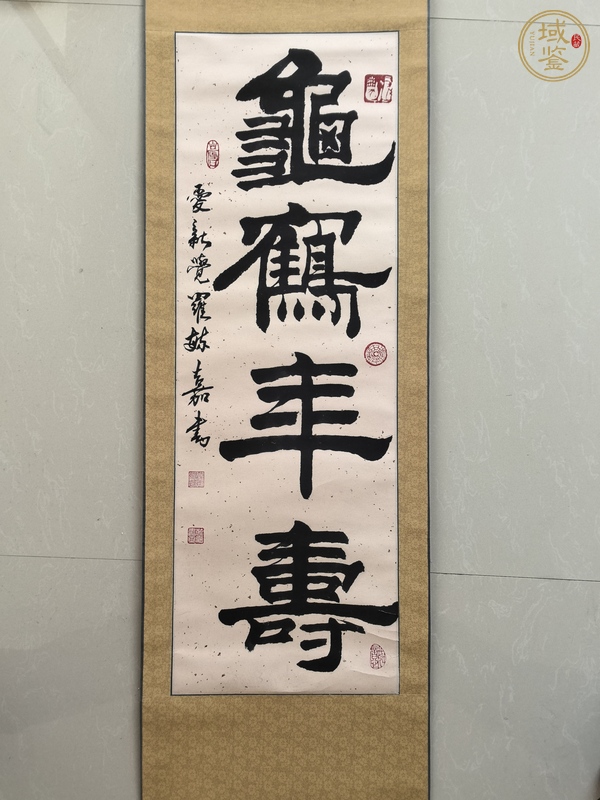 龜鶴年壽
愛新覺羅毓嘉書
域鉴
YUJIAN